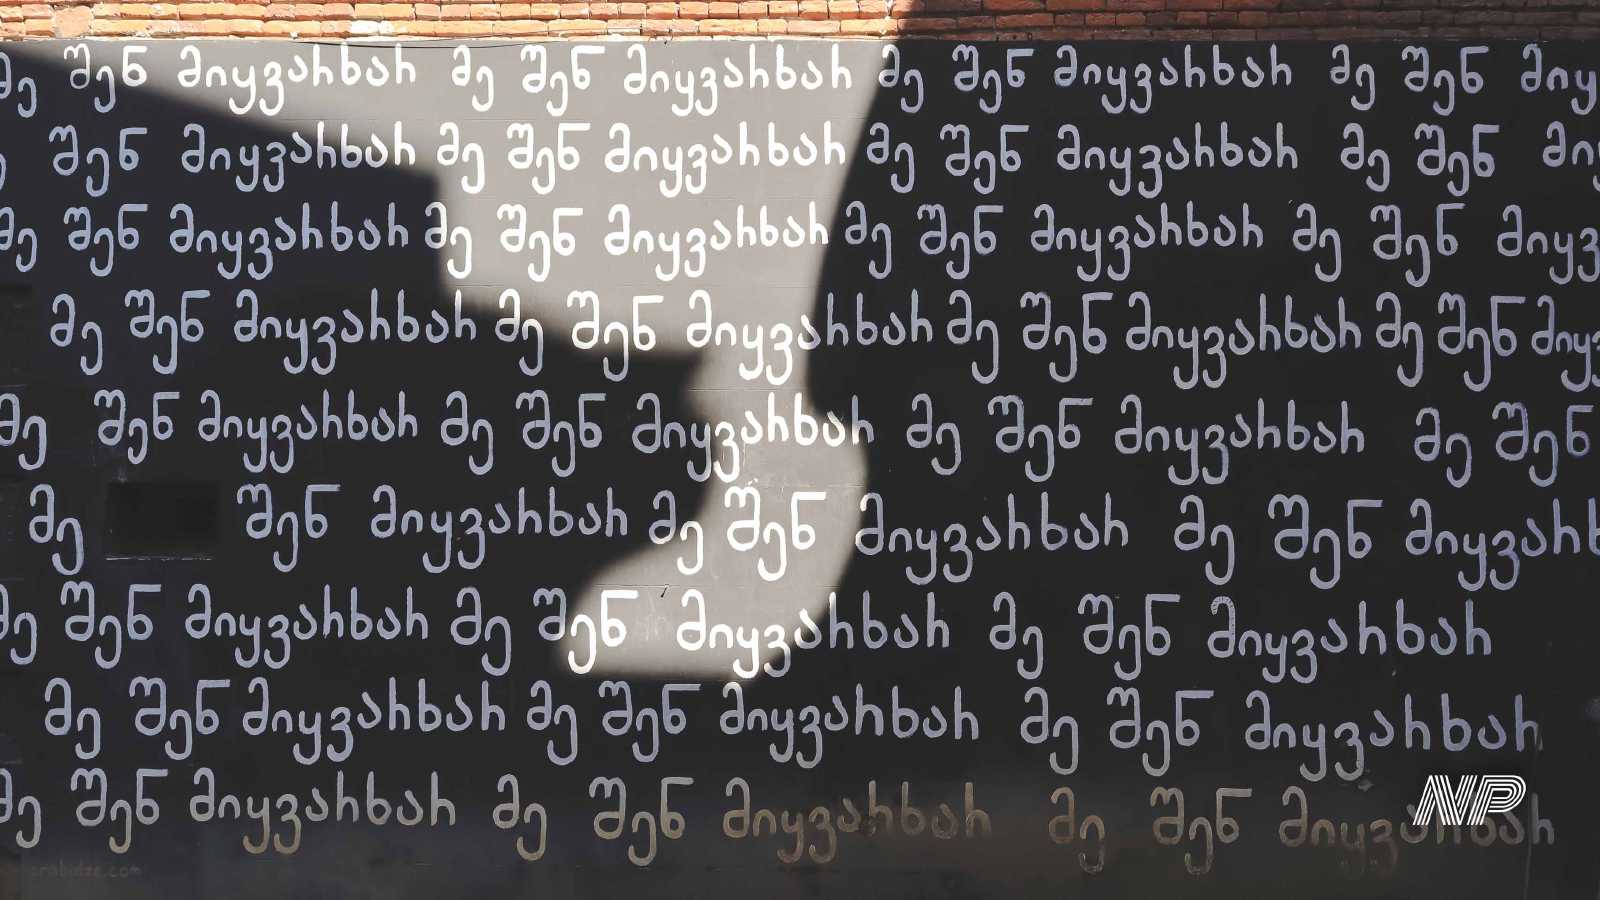 მე შენ მიყვარხარ მე შენ მიყვარხარ მე შენ მიყვარხარ მე შენ მიყ
შენ მიყვარხარ მე შენ მიყვარხარ მე შენ მიყვარხარ მე შენ მი
მე შენ მიყვარხარ მე შენ მიყვარხარ მე შენ მიყვარხარ მე შენ მიყვ
მე შენ მიყვარხარ მე შენ მიყვარხარ მე შენ მიყვარხარ მე შენ მიყვ
მე შენ მიყვარხარ მე შენ მიყვარხარ მე შენ მიყვარხარ მე შენ
მე შენ მიყვარხარ მე შენ მიყვარხარ მე შენ მიყვარხ
მე შენ მიყვარხარ მე შენ მიყვარხარ მე შენ მიყვარხარ
მე შენ მიყვარხარ მე შენ მიყვარხარ მე შენ მიყვარხარ
მე შენ მიყვარხარ მე შენ მიყვარხარ მე შენ მიყვარხარ
NP